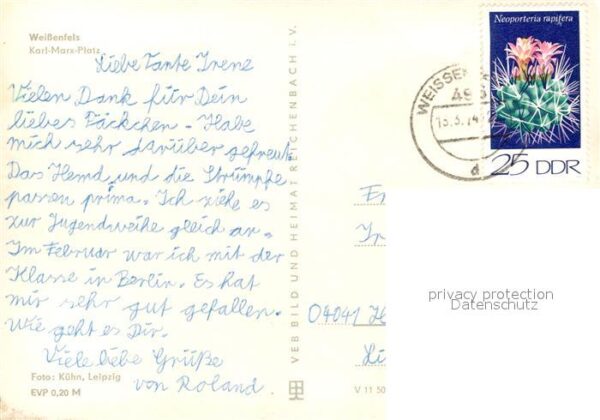 Weißenfels
Karl-Marx-Platz
Liebe Tante Irene
Vielen Dank für Dein
liebes Päckchen. Habe
mich sehr darüber gefreut.
Das Hemd und die Strümpfe
passen prima. Ich ziehe es
zur Jugendweihe gleich an.
Im Februar war ich mit der
Klasse in Berlin. Es hat
mir sehr gut gefallen.
Wie geht es Dir.
Viele liebe Grüße
von Roland
Foto: Kühn, Leipzig
EVP 0,20 M
VEB BILD UND HEIMAT REICHENBACH i. V.
V 11 50
Neoporteria rapifera
25 DDR
WEISSEN
49
d
04041 H
privacy protection
Datenschutz